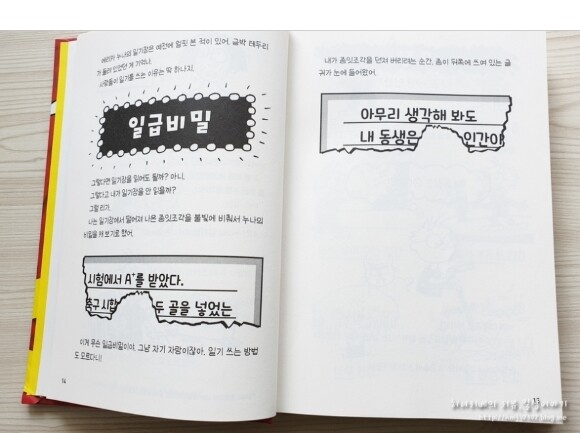 메리가 누나의 일기장은 예전에 얼핏 본 적이 있어. 금박 테두리
가 둘러 있었던 게 기억나.
사람들이 일기를 쓰는 이유는 딱 하나지.
일급비밀
그렇다면 일기장을 읽어도 될까? 아니.
그렇다고 내가 일기장을 안 읽을까?
그럴 리가.
나는 일기장에서 떨어져 나온 종잇조각을 불빛에 비춰서 누나의
비밀을 캐 보기로 했어.
시험에서 A+를 받았다.
축구 시합 두 골을 넣었는
이게 무슨 일급비밀이야. 그냥 자기 자랑이잖아. 일기 쓰는 방법
도 모르다니!
14
내가 종잇조각을 던져 버리려는 순간, 종이 뒤쪽에 쓰여 있는 글
귀가 눈에 들어왔어.
아무리 생각해 봐도
내 동생은 인간이
15